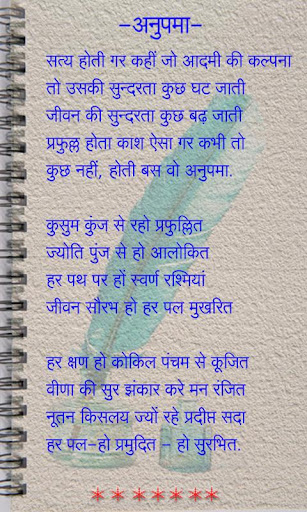 -अनुपमा-
सत्य होती गर कहीं जो आदमी की कल्पना
तो उसकी सुन्दरता कुछ घट जाती
जीवन की सुन्दरता कुछ बढ़ जाती
प्रफुल्ल होता काश ऐसा गर कभी तो
कुछ नहीं, होती बस वो अनुपमा.
कुसुम कुंज से रहो प्रफुल्लित
ज्योति पुंज से हो आलोकित
हर पथ पर हों स्वर्ण रश्मियां
जीवन सौरभ हो हर पल मुखरित
हर क्षण हो कोकिल पचम से कूजित
वीणा की सुर झंकार करे मन रंजित
नूतन किसलय ज्यों रहे प्रदीप्त सदा
हर पल-हो प्रमुदित - हो सुरभित.
*******